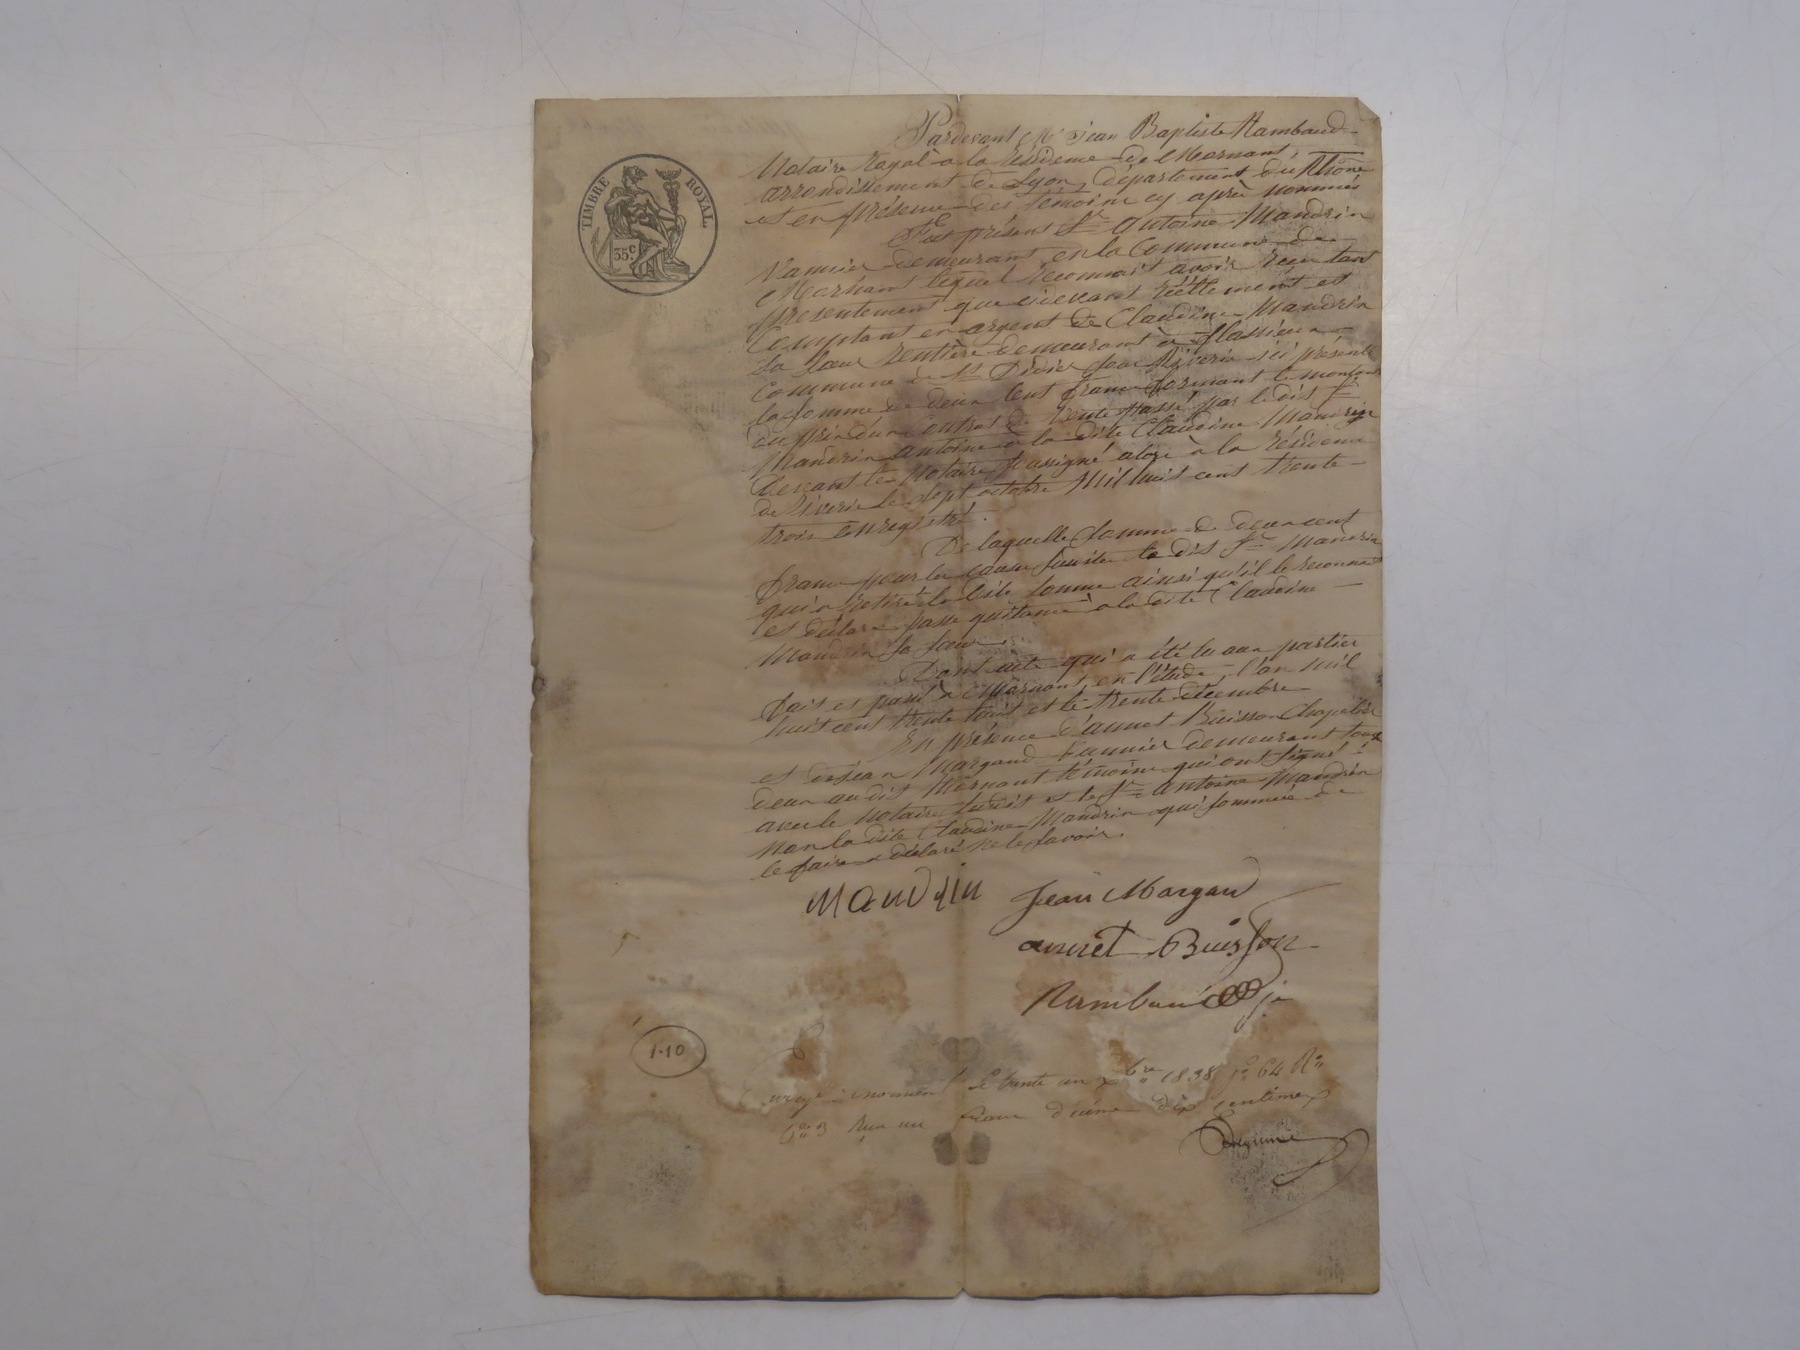 Pardevant Me Jean Baptiste Rambaud
Notaire Royal à la résidence de Mornant,
arrondissement de Lyon, département du Rhône
et en présence des témoins cy après nommés
Fut présent Sr Antoine Mandrin
Vannier demeurant en la Commune de
Mornant lequel reconnait avoir reçu tant
presentement que cidevant réellement et
Comptant en argent de Claudine Mandrin
Sa Sœur rentière demeurant à
Commune de St Didier sous Riverie ici présente
la somme de deux cent francs formant le montant
du prix d'un contrat de vente passé par le dit Sr
Mandrin Antoine à la dite Claudine Mandrin
devant le Notaire soussigné alors à la résidence
de Riverie le sept octobre Mil huit cent trente
trois Enregistré.
De laquelle Somme de deux cent
francs pour les causes Susdites le dit Sr Mandrin
qui a retiré la dite somme ainsi qu'il le reconnait
et déclare passe quittance à la dite Claudine
Mandrin sa sœur.
Dont acte qui a été lu aux parties
fait et passé à Mornant, en l'étude, l'an mil
huit cent trente huit et le trente décembre
En présence d'annet Buisson Chapelier
et de Jean Margand Vannier demeurant tous
deux audit Mornant témoins qui ont signé
avec le Notaire Susdit et le Sr Antoine Mandrin
Non la dite Claudine Mandrin qui sommée de
le faire a déclaré ne le savoir.
Mandrin Jean Margand
annet Buisson
Rambaud
TIMBRE ROYAL
35 C
1.10
mornant le trente un Xbre 1838 fo 64 Ro
Co 3 Reçu un franc décime dix centimes